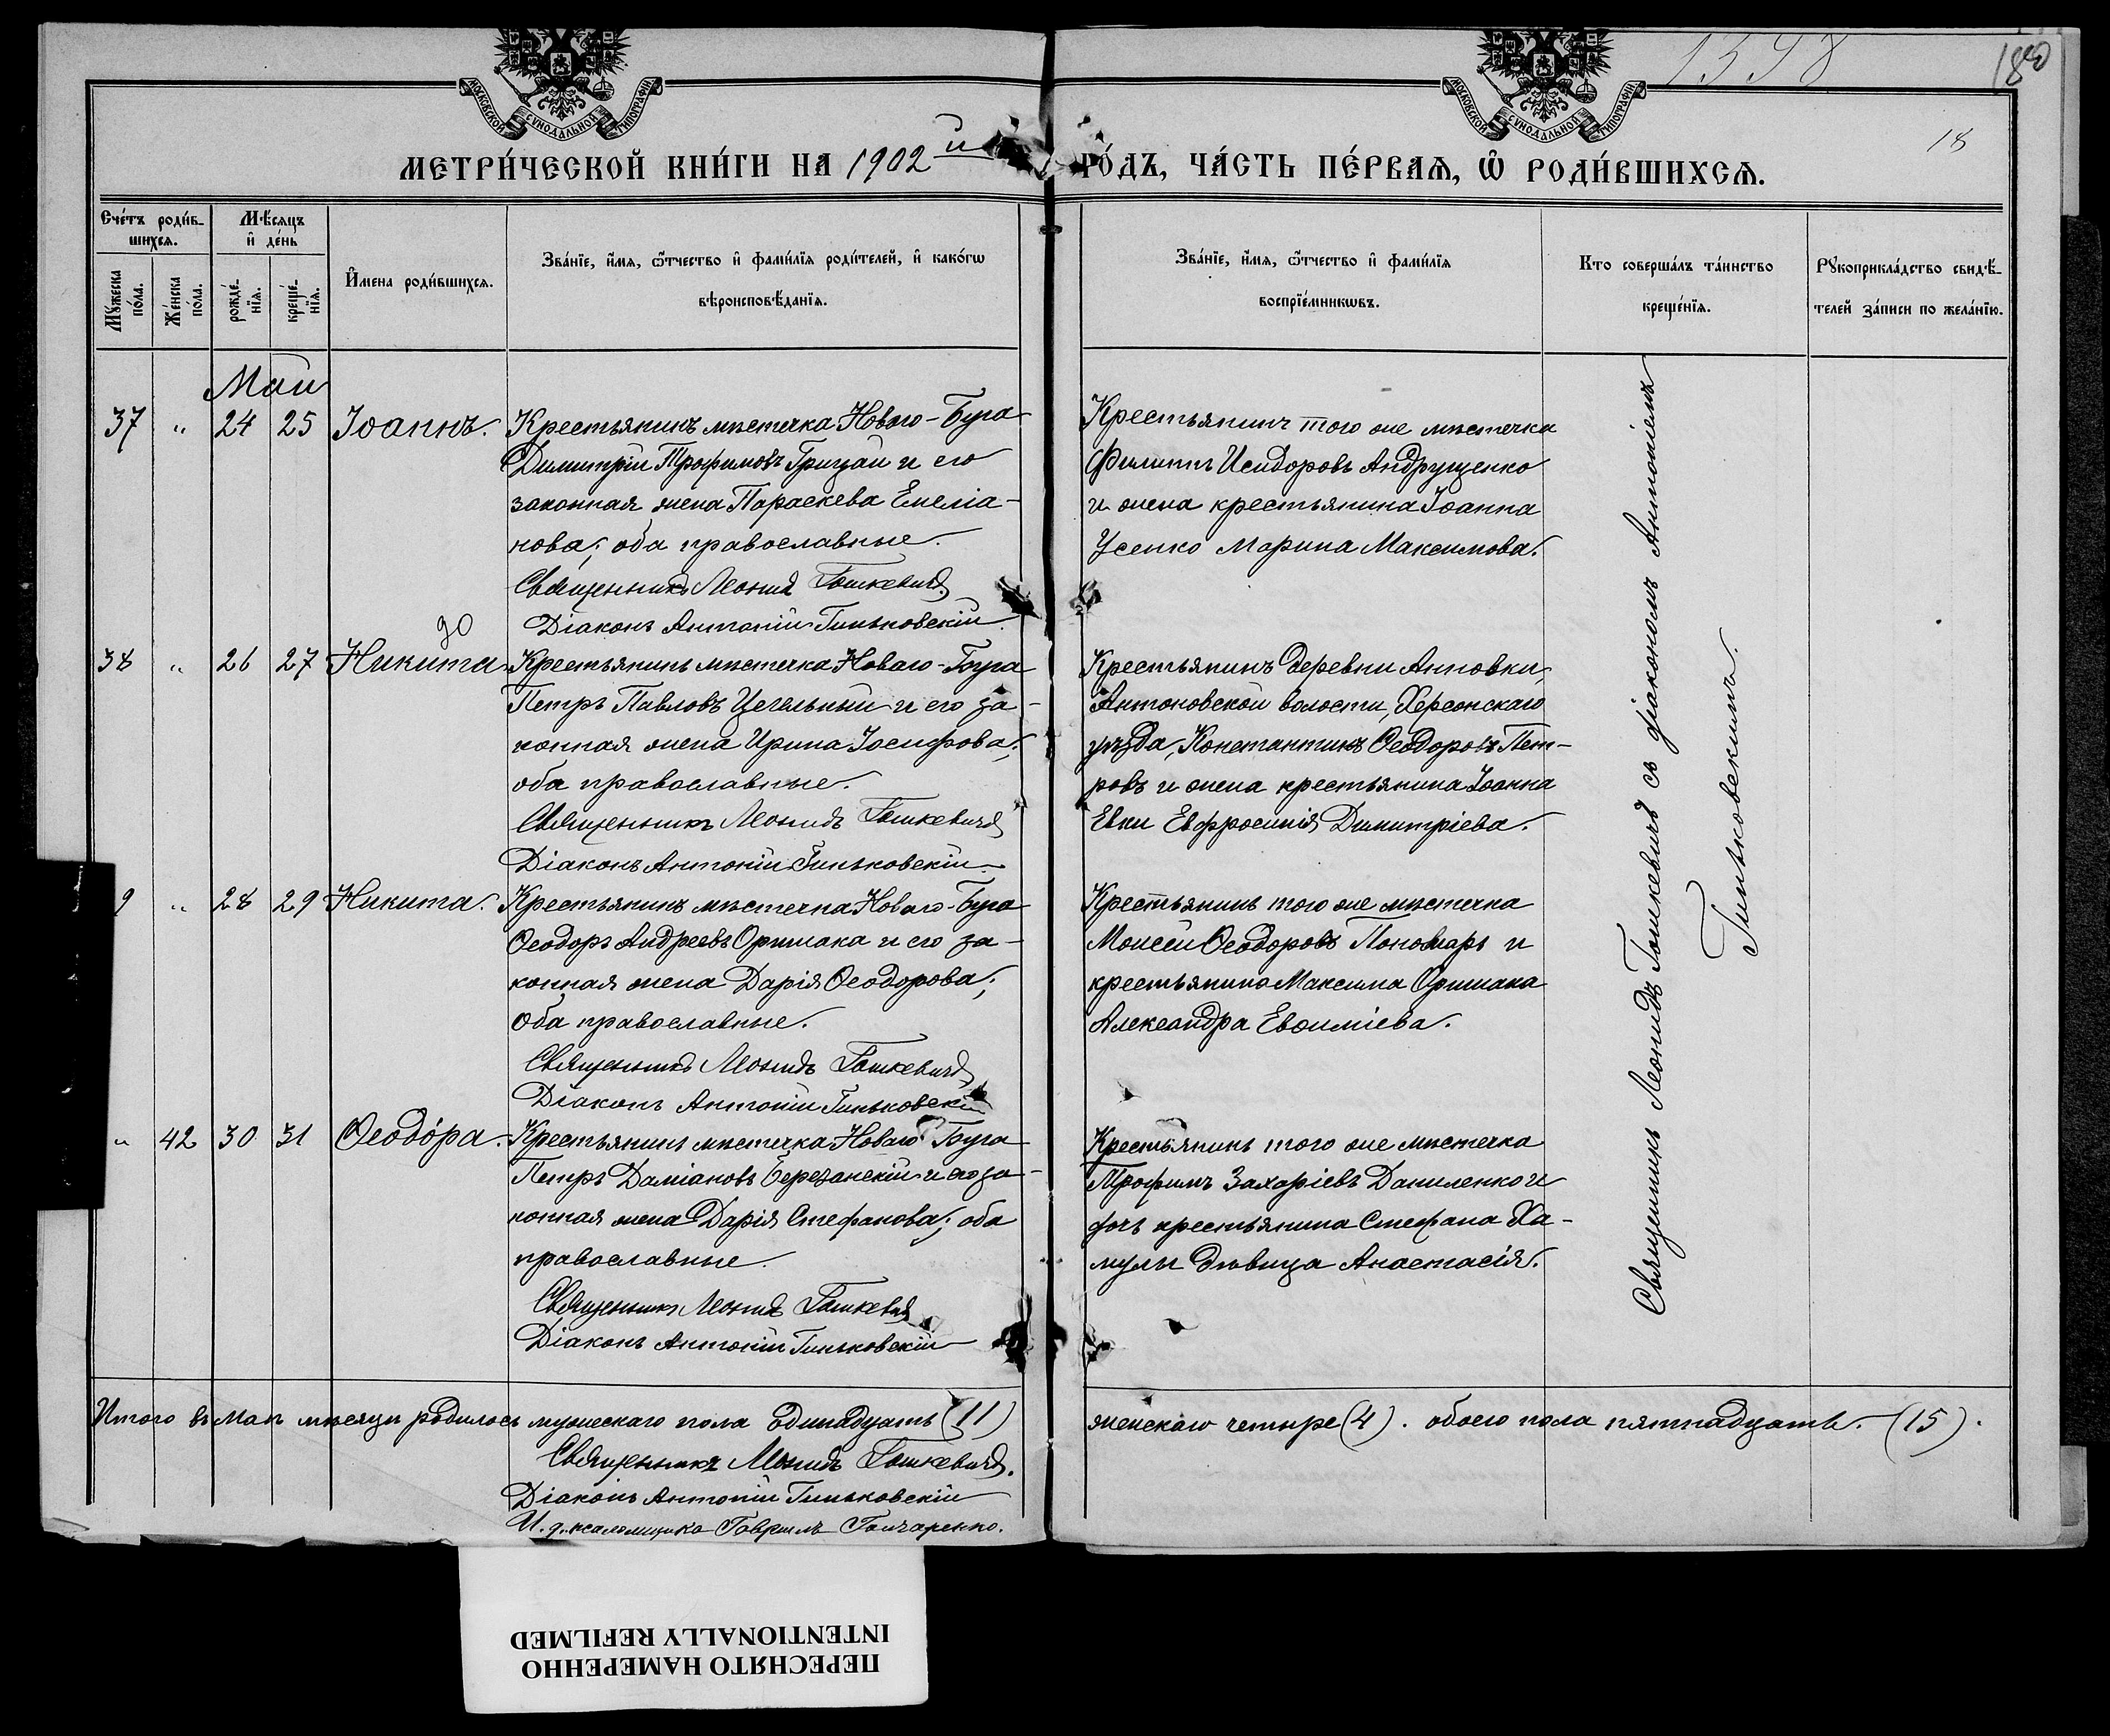 1398
180
18
МОСКОВСКОЙ СѴНОДАЛЬНОЙ ТИПОГРАФІИ
МОСКОВСКОЙ СѴНОДАЛЬНОЙ ТИПОГРАФІИ
МЕТРИ́ЧЕСКОЙ КНИ́ГИ НА 1902й ГО́ДЪ, ЧА́СТЬ ПЕ́РВАѦ, Ѡ҆ РОДИ́ВШИХСѦ.
Счётъ роди́в-
шихсѧ.
Мꙋ́жеска по́ла.
Же́нска по́ла.
Мѣ́сѧцъ
и҆ де́нь
рожде́-нїѧ.
креще́-нїѧ.
И҆мена роди́вшихсѧ.
Зва́нїе, и҆́мѧ, ѻ҆́тчество и҆ фами́лїѧ роди́телей, и҆ како́гѡ
вѣроисповѣ́данїѧ.
Зва́нїе, и҆́мѧ, ѻ҆́тчество и҆ фами́лїѧ
воспрїе́мникѡвъ.
Кто соверша́лъ та́инство
креще́нїѧ.
Рꙋкоприкла́дство свидѣ́-
телей за́писи по жела́нїю.
Май
37 " 24 25 Іоаннъ.
Крестьянинъ мѣстечка Новаго-Буга
Димитрій Трофимовъ Грицай и его
законная жена Параскева Емеліа-
нова; оба православные.
Священникъ Леонид Гошкевичъ.
Діаконъ Антоній Гиньковскій.
Крестьянинъ того же мѣстечка
Филиппъ Исидоровъ Андрущенко
и жена крестьянина Іоанна
Усенко Марина Максимова.
до
38 " 26 27 Никита.
Крестьянинъ мѣстечка Новаго-Буга
Петръ Павловъ Цегельный и его за-
конная жена Ирина Іосифова;
оба православные.
Священникъ Леонидъ Гошкевичъ
Діаконъ Антоній Гиньковскій.
Крестьянинъ деревни Анновки,
Антоновской волости, Херсонскаго
уѣзда, Константинъ Ѳеодоровъ Пет-
ровъ и жена крестьянина Іоанна
Евки Евфросинія Димитріева.
9 " 28 29 Никита.
Крестьянинъ мѣстечка Новаго-Буга
Ѳеодоръ Андреевъ Оришака и его за-
конная жена Дарія Ѳеодорова;
оба православные.
Священникъ Леонидъ Гошкевичъ
Діаконъ Антоній Гиньковскій
Крестьянинъ того же мѣстечка
Моисей Ѳеодоровъ Пономарь и
крестьянина Максима Оришака
Александра Евѳиміева.
" 42 30 31 Ѳеодо́ра.
Крестьянинъ мѣстечка Новаго Буга
Петръ Даміановъ Березанскій и его за-
конная жена Дарія Стефанова; оба
православные.
Священникъ Леонидъ Гошкевичъ
Діаконъ Антоній Гиньковскій
Крестьянинъ того же мѣстечка
Трофимъ Захаріевъ Даниленко и
дочь крестьянина Стефана Ха-
мулы дѣвица Анастасія.
Священникъ Леонидъ Гошкевичъ съ діакономъ Антоніемъ
Гиньковскимъ.
Итого въ маѣ мѣсяцѣ родилось мужескаго пола одинадцать (11) женскаго четыре (4). обоего пола пятнадцать. (15).
Священникъ Леонидъ Гошкевичъ.
Діаконъ Антоній Гиньковскій
И. д. псаломщика Гавріилъ Гончаренко.
ПЕРЕСНЯТО НАМЕРЕННО
INTENTIONALLY REFILMED